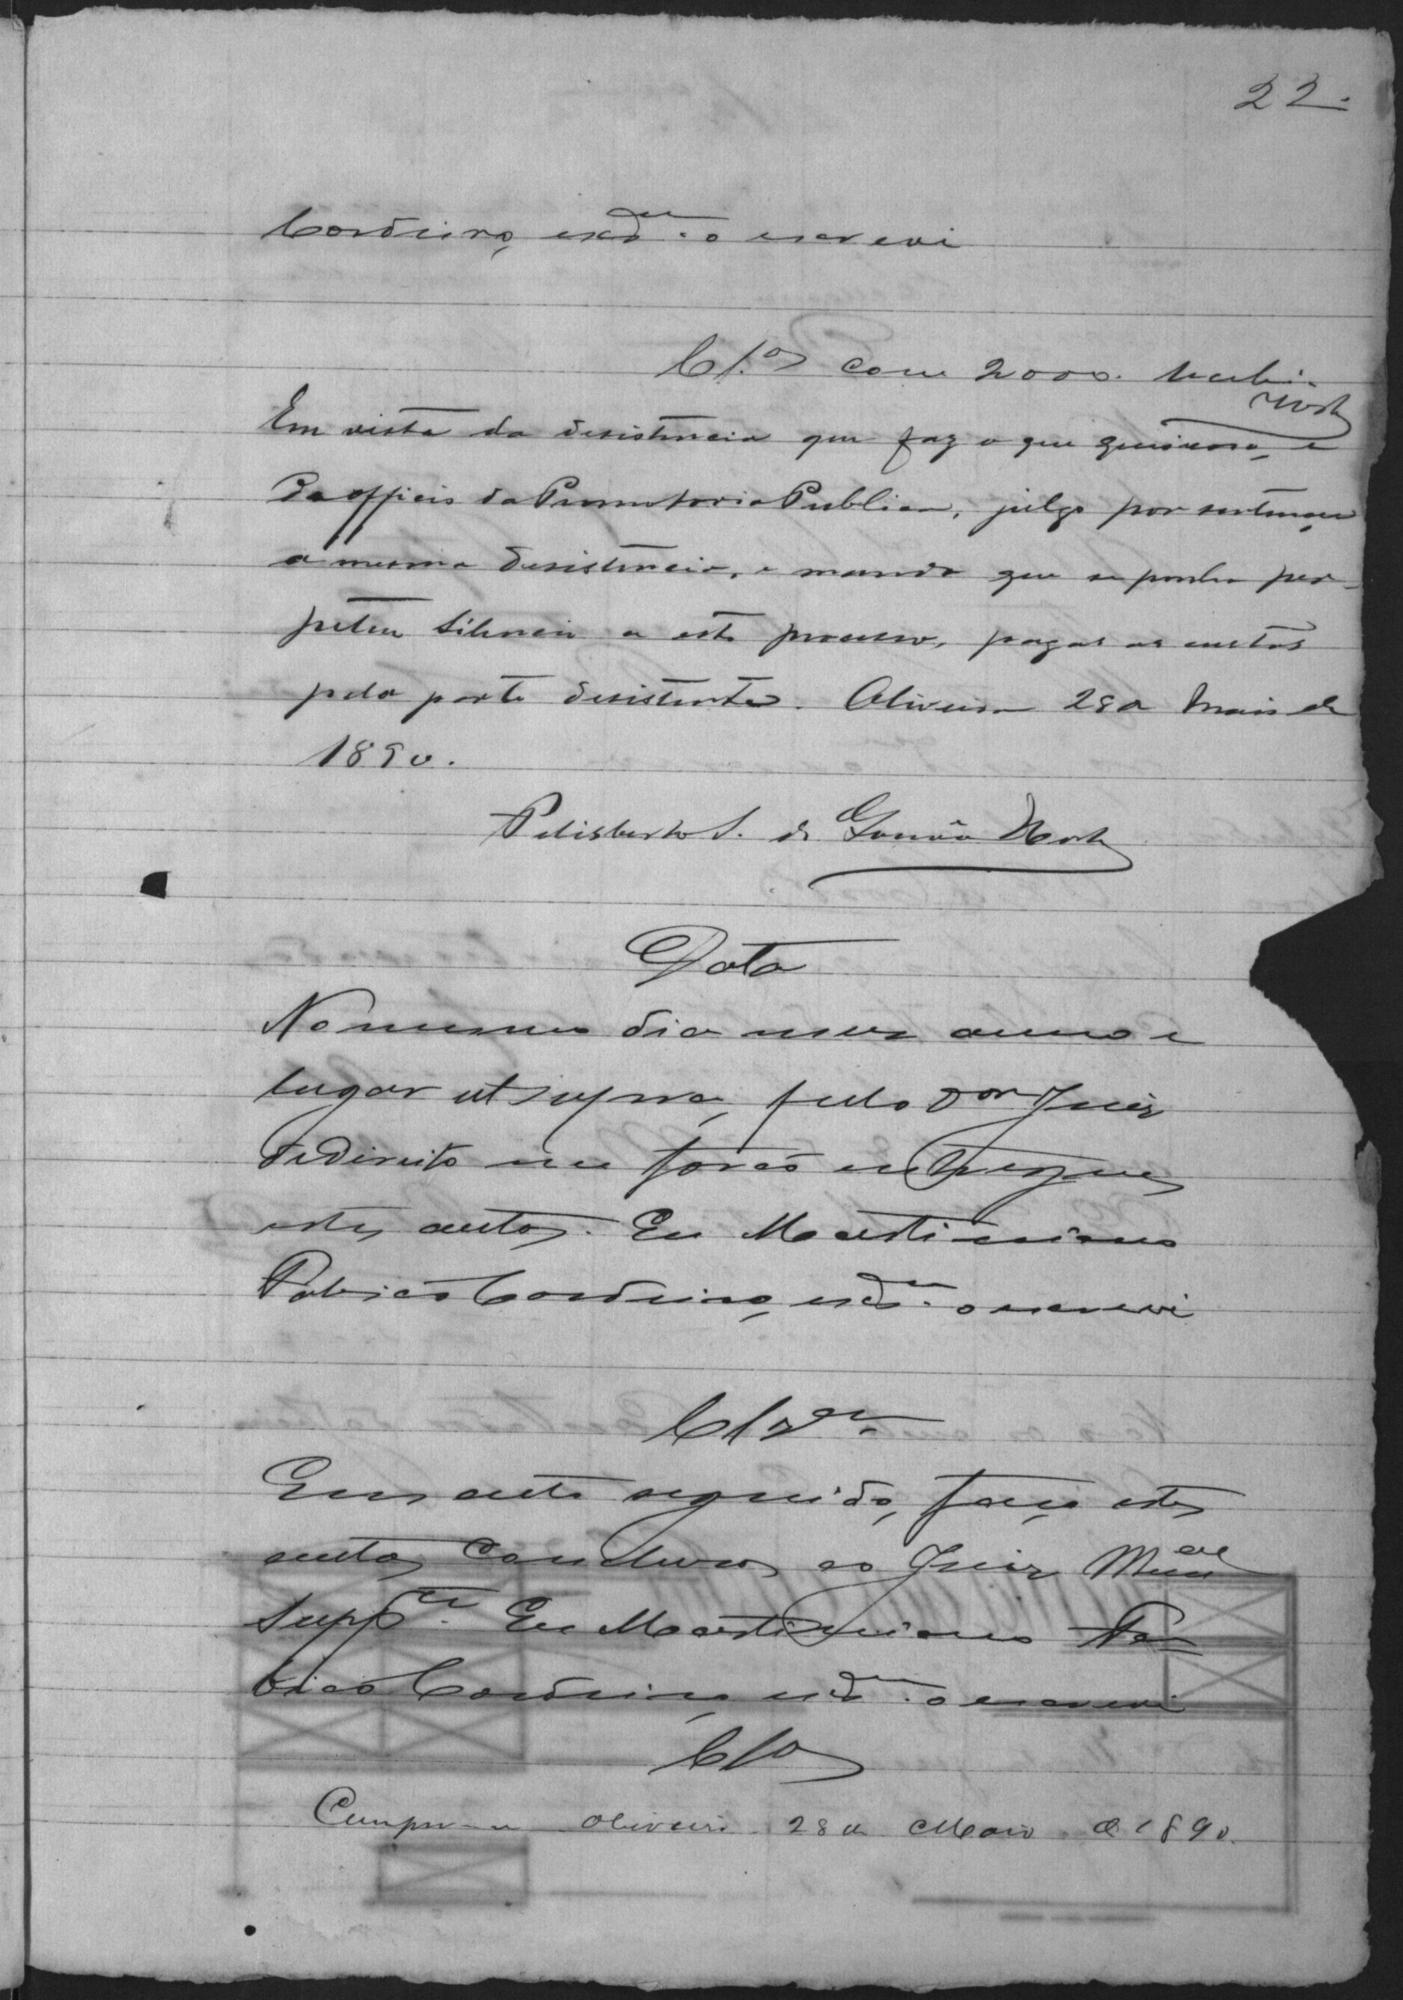 22.
Cordeiro, escr.am o escrevi
Cl.os com 2000. Recebi.
Horta
Em vista da desistencia que faz o queixoso, e
do officio da Promotoria Publica, julgo por sentença
a mesma desistencia, e mando que se ponha per-
petuo silencio a este processo, pagas as custas
pela parte desistente. Oliveira 28 de Maio de
1890.
Felisberto S. de Gouvêa Horta
Data
No mesmo dia mez anno e
lugar ut supra, pelo Dor Juiz
de direito me forão entregues
estes autos. Eu Martiniano
Patricio Cordeiro, escr.am o escrevi
Cl.zam
Em acto seguido, faço estes
autos conclusos ao Juiz Mun.al
Supp.te. Eu Martiniano Pa
tricio Cordeiro, escr.am o escrevi
Cl.os
Cumpra-se Oliveira 28 de Maio de 1890.